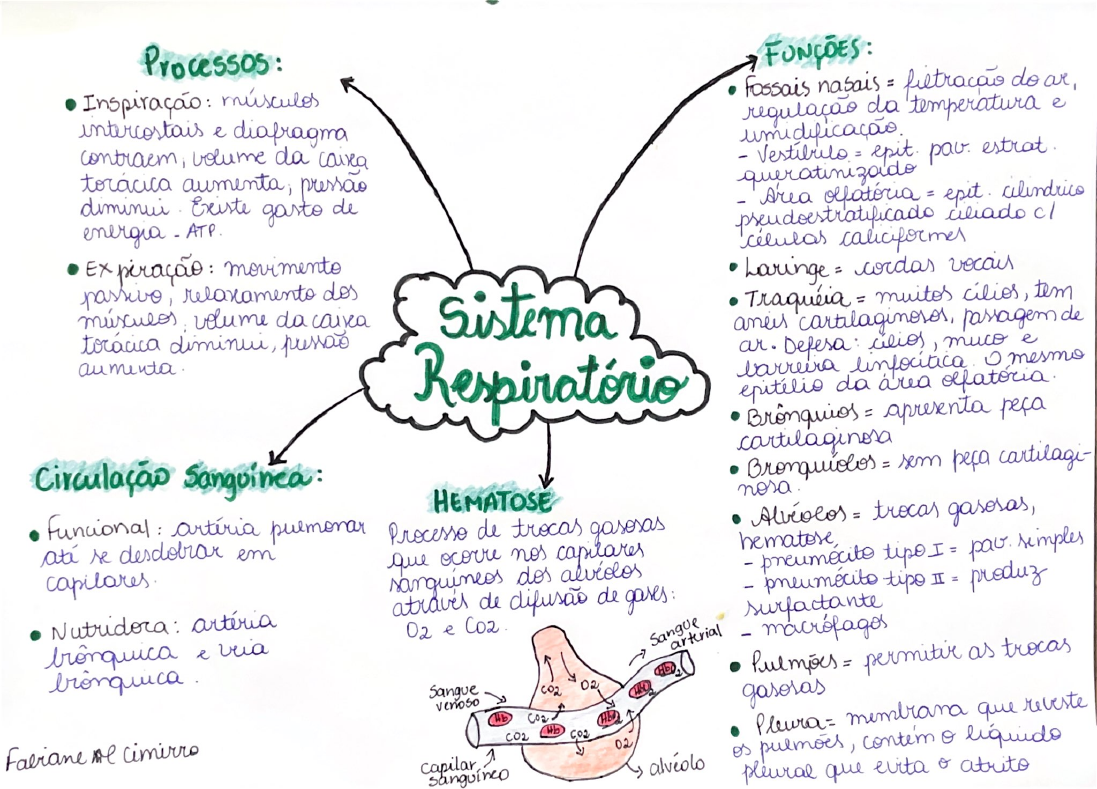 Processos:
• Inspiração: músculos
intercostais e diafragma
contraem, volume da caixa
torácica aumenta, pressão
diminui. Existe gasto de
energia - ATP.
• Expiração: movimento
passivo, relaxamento dos
músculos, volume da caixa
torácica diminui, pressão
aumenta.
Funções:
• Fossais nasais = filtração do ar,
regulação da temperatura e
umidificação.
- Vestíbulo = epit. pav. estrat.
queratinizado
- Área olfatória = epit. cilíndrico
pseudoestratificado ciliado c/
células caliciformes
• Laringe = cordas vocais
• Traquéia = muitos cílios, tem
anéis cartilaginosos, passagem de
ar. Defesa: cílios, muco e
barreira linfocítica. O mesmo
epitélio da área olfatória.
• Brônquios = apresenta peça
cartilaginosa
• Bronquíolos = sem peça cartilagi-
nosa.
• Alvéolos = trocas gasosas,
hematose
- pneumócito tipo I = pav. simples
- pneumócito tipo II = produz
surfactante
- macrófagos
• Pulmões = permitir as trocas
gasosas
• Pleura = membrana que reveste
os pulmões, contém o líquido
pleural que evita o atrito
Sistema
Respiratório
Circulação Sanguínea:
• Funcional: artéria pulmonar
até se desdobrar em
capilares.
• Nutridora: artéria
brônquica e veia
brônquica.
HEMATOSE
Processo de trocas gasosas
que ocorre nos capilares
sanguíneos dos alvéolos
através de difusão de gases:
O2 e CO2.
Sangue
arterial
Sangue
venoso
CO2
O2
Hb
CO2
CO2
Hb
CO2
HbO2
HbO2
HbO2
O2
Capilar
sanguíneo
alvéolo
Fabiane Al Cimirro